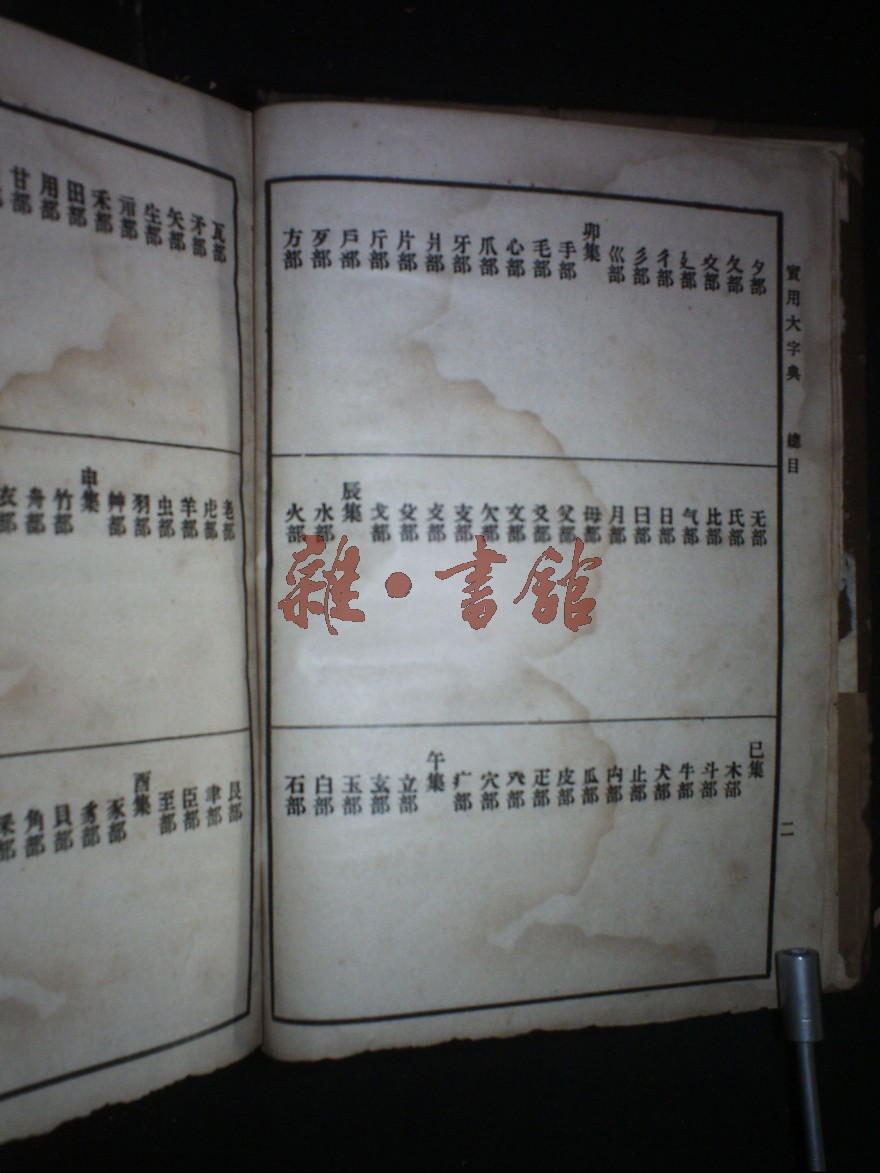 實用大字典 總目
二
夕部
夂部
夊部
廴部
彳部
彡部
巛部
卯集
手部
毛部
心部
爪部
牙部
爿部
片部
斤部
戶部
歹部
方部
无部
氏部
比部
气部
日部
曰部
月部
毋部
父部
爻部
文部
欠部
支部
攴部
殳部
戈部
辰集
水部
火部
巳集
木部
斗部
牛部
犬部
止部
内部
瓜部
皮部
疋部
癶部
穴部
疒部
午集
立部
玄部
玉部
白部
石部
瓦部
矛部
矢部
生部
示部
禾部
田部
用部
甘部
老部
虍部
羊部
虫部
羽部
艸部
竹部
申集
舟部
衣部
艮部
聿部
臣部
至部
酉集
豕部
豸部
貝部
角部
釆部
雜·書館